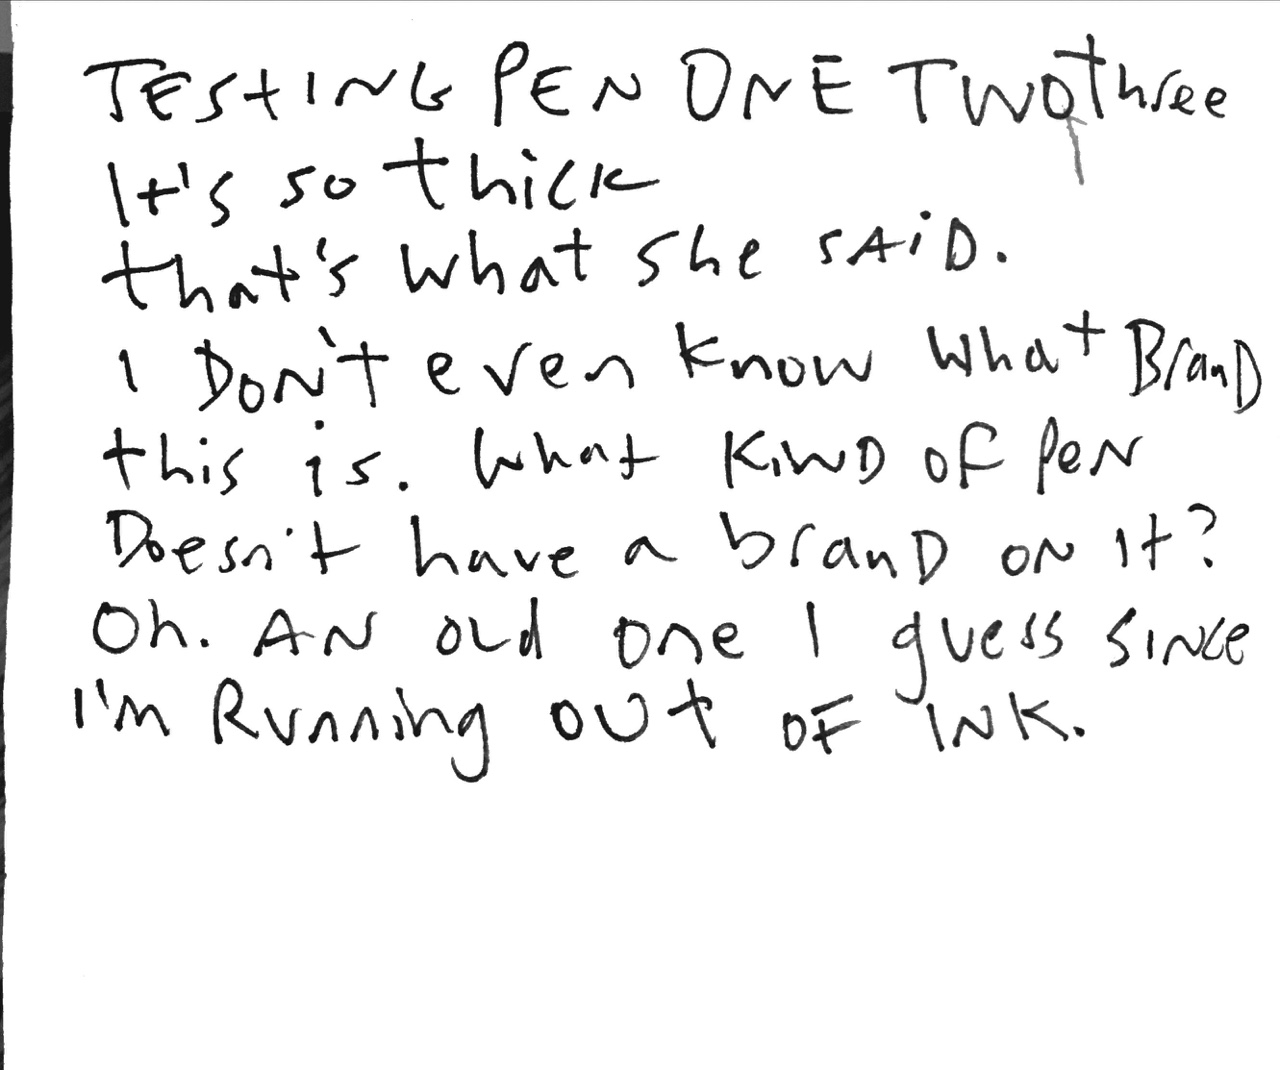 TESTING PEN ONE TWO three
It's so thick
that's what she SAID.
I DON'T even know what BranD
this is. What KIND of PeN
Doesn't have a branD ON It?
Oh. AN old one I guess SINCE
I'm Running OUt OF INK.